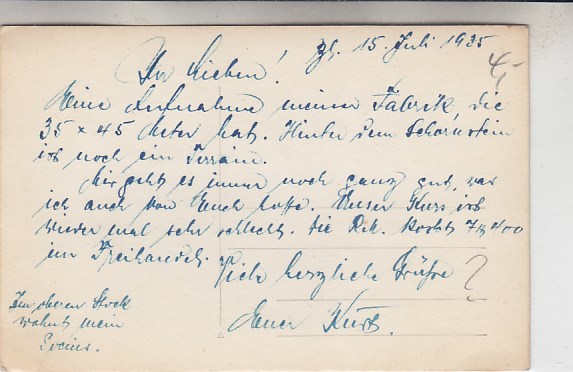 Zh. 15. Juli 1935
4,-
Ihr Lieben!
Eine Aufnahme meiner Fabrik, die
35 x 45 Meter hat. Hinter dem Schornstein
ist noch ein Terrain.
Mir geht es immer noch ganz gut, was
ich auch von Euch hoffe. Unser Kurs ist
wieder mal sehr schlecht. Die Rm. kostet 7$400
im Freihandel.
Viele herzliche Grüsse
Euer Kurt.
Im oberen Stock
wohnt mein
Socius.
?